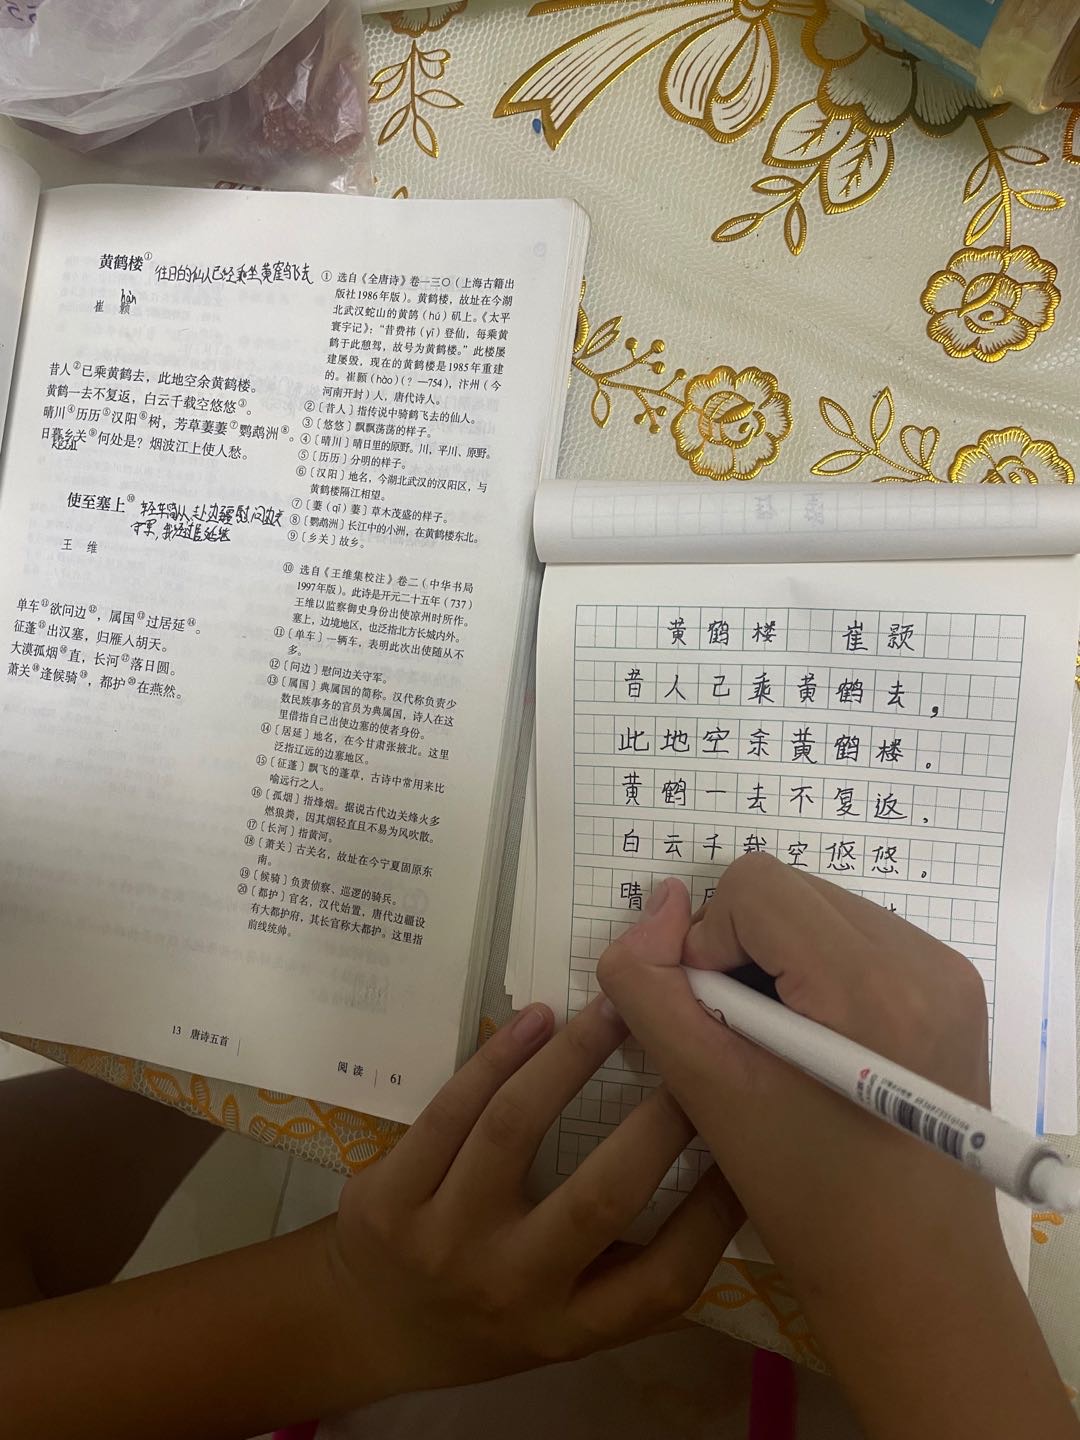 黄鹤楼①
往日的仙人已经乘坐黄鹤飞去
hào
崔 颢
昔人②已乘黄鹤去，此地空余黄鹤楼。
黄鹤一去不复返，白云千载空悠悠③。
晴川④历历⑤汉阳⑥树，芳草萋萋⑦鹦鹉洲⑧。
日暮乡关⑨何处是？烟波江上使人愁。
使至塞上⑩
轻车简从，赴边疆慰问边关
守军，我经过居延
王 维
单车⑪欲问边⑫，属国⑬过居延⑭。
征蓬⑮出汉塞，归雁入胡天。
大漠孤烟⑯直，长河⑰落日圆。
萧关⑱逢候骑⑲，都护⑳在燕然。
① 选自《全唐诗》卷一三〇（上海古籍出
版社1986年版）。黄鹤楼，故址在今湖
北武汉蛇山的黄鹄（hú）矶上。《太平
寰宇记》：“昔费祎（yī）登仙，每乘黄
鹤于此憩驾，故号为黄鹤楼。”此楼屡
建屡毁，现在的黄鹤楼是1985年重建
的。崔颢（hào）（？—754），汴州（今
河南开封）人，唐代诗人。
②〔昔人〕指传说中骑鹤飞去的仙人。
③〔悠悠〕飘飘荡荡的样子。
④〔晴川〕晴日里的原野。川，平川、原野。
⑤〔历历〕分明的样子。
⑥〔汉阳〕地名，今湖北武汉的汉阳区，与
黄鹤楼隔江相望。
⑦〔萋（qī）萋〕草木茂盛的样子。
⑧〔鹦鹉洲〕长江中的小洲，在黄鹤楼东北。
⑨〔乡关〕故乡。
⑩ 选自《王维集校注》卷二（中华书局
1997年版）。此诗是开元二十五年（737）
王维以监察御史身份出使凉州时所作。
塞上，边境地区，也泛指北方长城内外。
⑪〔单车〕一辆车，表明此次出使随从不
多。
⑫〔问边〕慰问边关守军。
⑬〔属国〕典属国的简称。汉代称负责少
数民族事务的官员为典属国，诗人在这
里借指自己出使边塞的使者身份。
⑭〔居延〕地名，在今甘肃张掖北。这里
泛指辽远的边塞地区。
⑮〔征蓬〕飘飞的蓬草，古诗中常用来比
喻远行之人。
⑯〔孤烟〕指烽烟。据说古代边关烽火多
燃狼粪，因其烟轻直且不易为风吹散。
⑰〔长河〕指黄河。
⑱〔萧关〕古关名，故址在今宁夏固原东
南。
⑲〔候骑〕负责侦察、巡逻的骑兵。
⑳〔都护〕官名，汉代始置，唐代边疆设
有大都护府，其长官称大都护。这里指
前线统帅。
13 唐诗五首
阅读 61
黄鹤楼 崔颢
昔人已乘黄鹤去，
此地空余黄鹤楼。
黄鹤一去不复返，
白云千载空悠悠。
晴